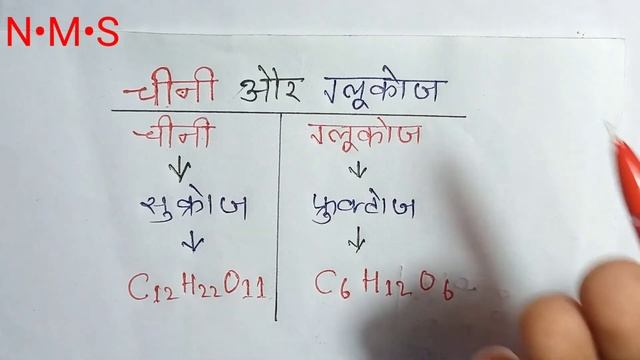 N•M•S
चीनी और ग्लूकोज
चीनी ग्लूकोज
↓ ↓
सुक्रोज फ्रुक्टोज
↓ ↓
C₁₂H₂₂O₁₁ C₆H₁₂O₆